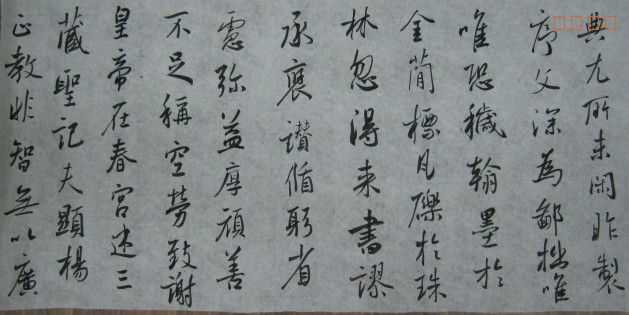 典尤所未閑昨製
序文深為鄙拙唯
唯恐穢翰墨於
金簡標瓦礫於珠
林忽得来書謬
承褒讃循躬省
慮弥益厚顔善
不足稱空勞致謝
皇帝在春宮述三
藏聖記夫顯揚
正教非智無以廣